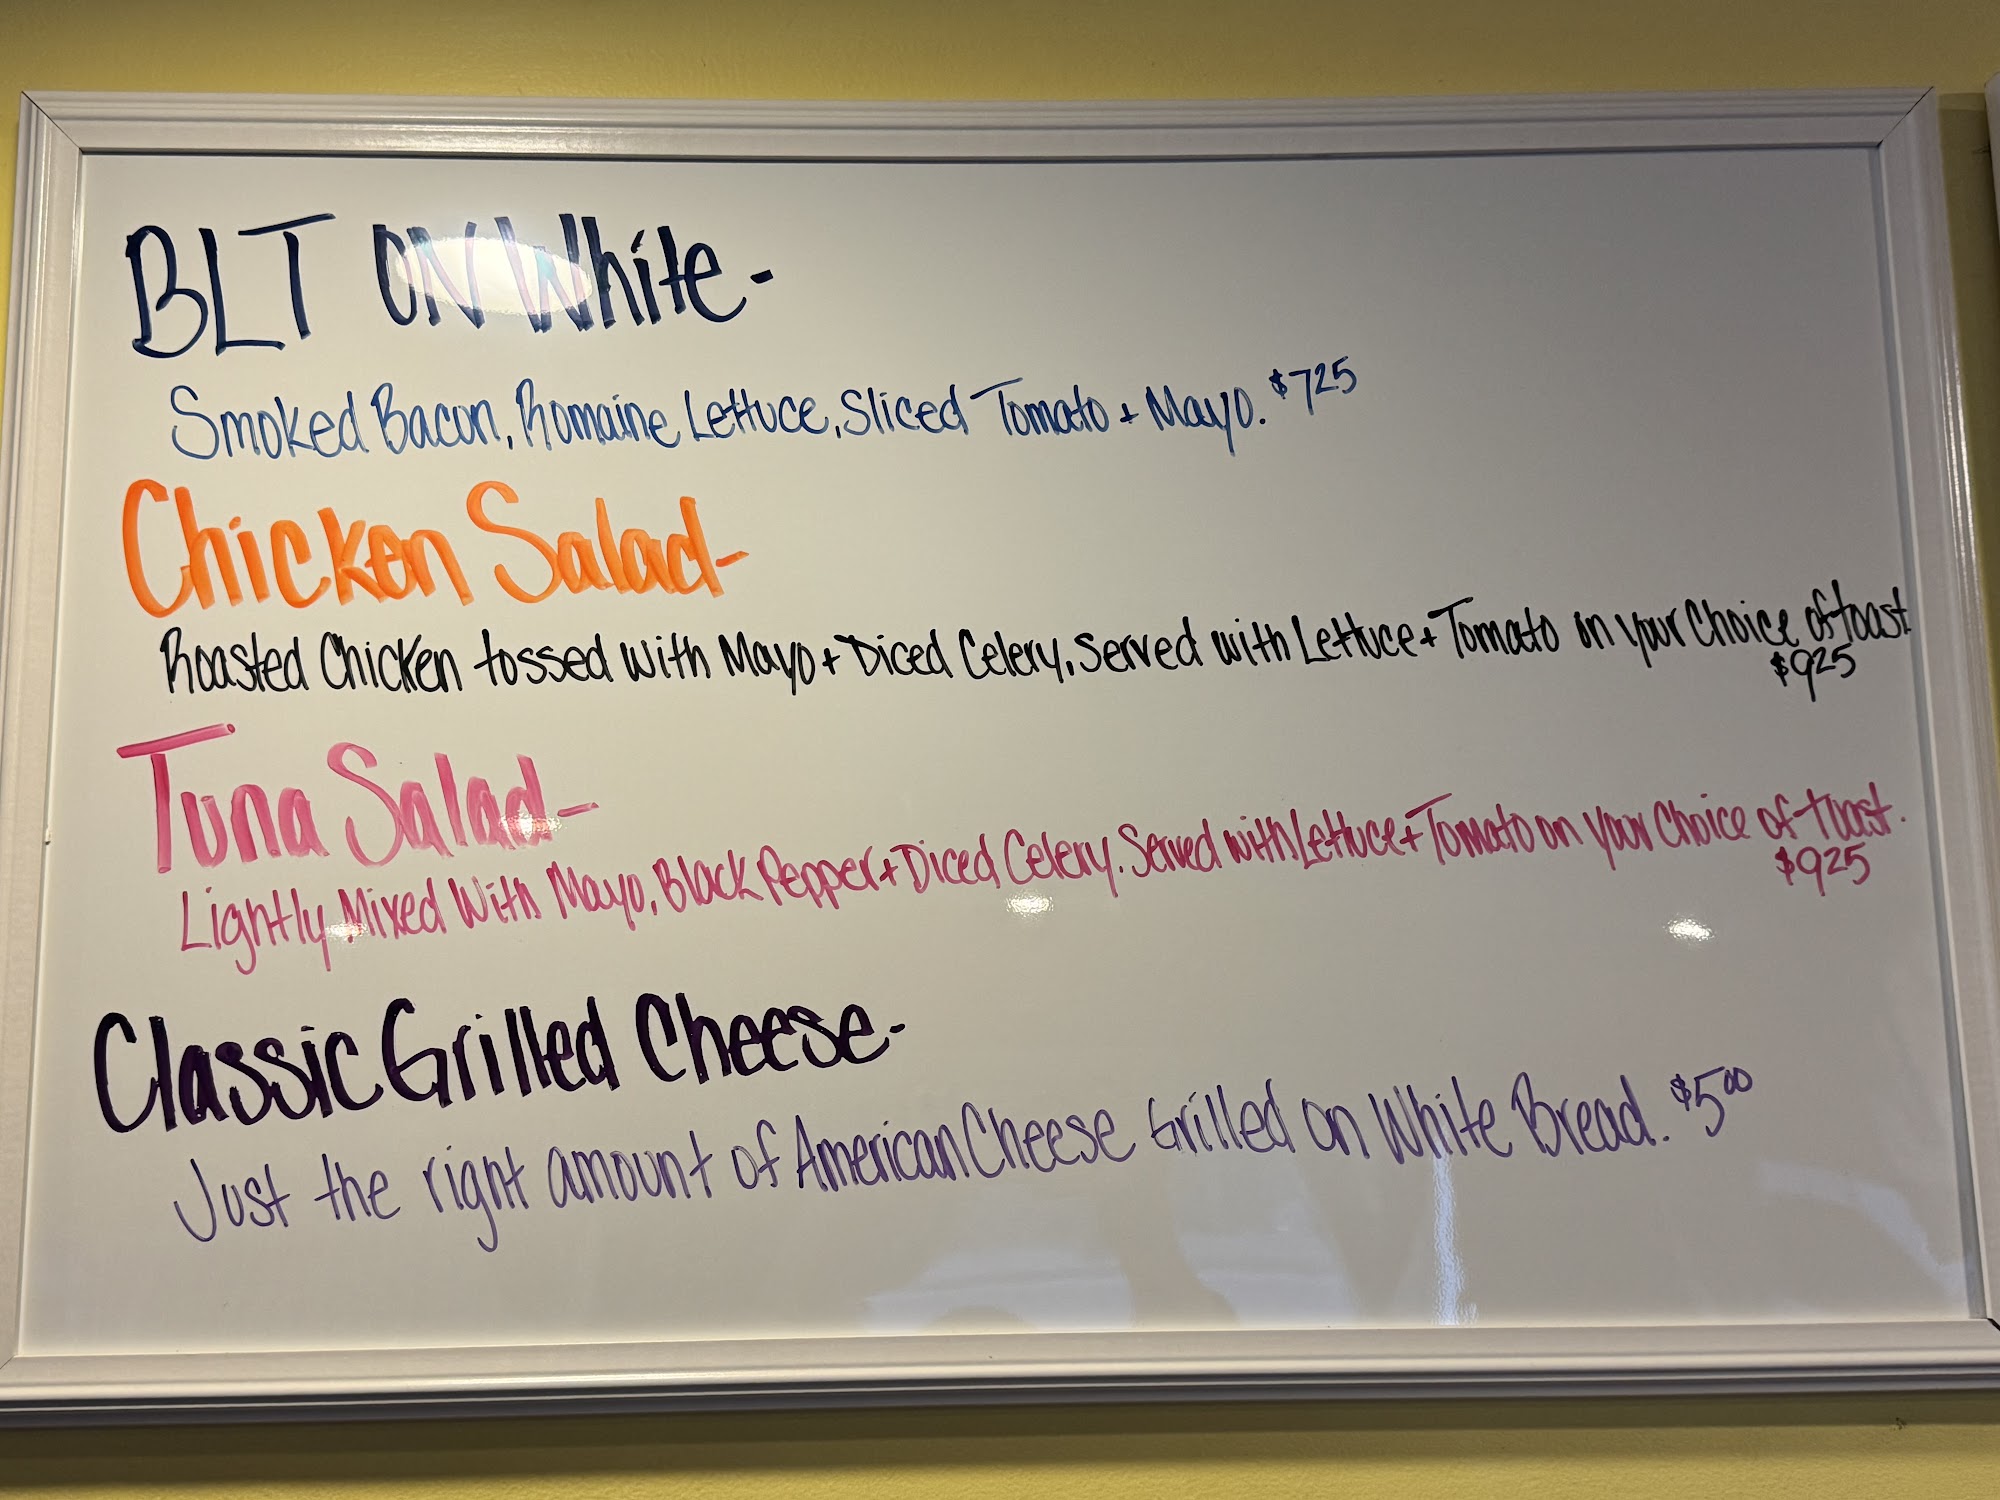 BLT ON White-
Smoked Bacon, Romaine Lettuce, Sliced Tomato + Mayo. $725
Chicken Salad-
Roasted Chicken tossed with Mayo + Diced Celery. Served with Lettuce + Tomato on your Choice of toast
$925
Tuna Salad-
Lightly Mixed With Mayo, Black Pepper + Diced Celery. Served with Lettuce + Tomato on your Choice of toast.
$925
Classic Grilled Cheese-
Just the right amount of American Cheese Grilled on White Bread. $5.00